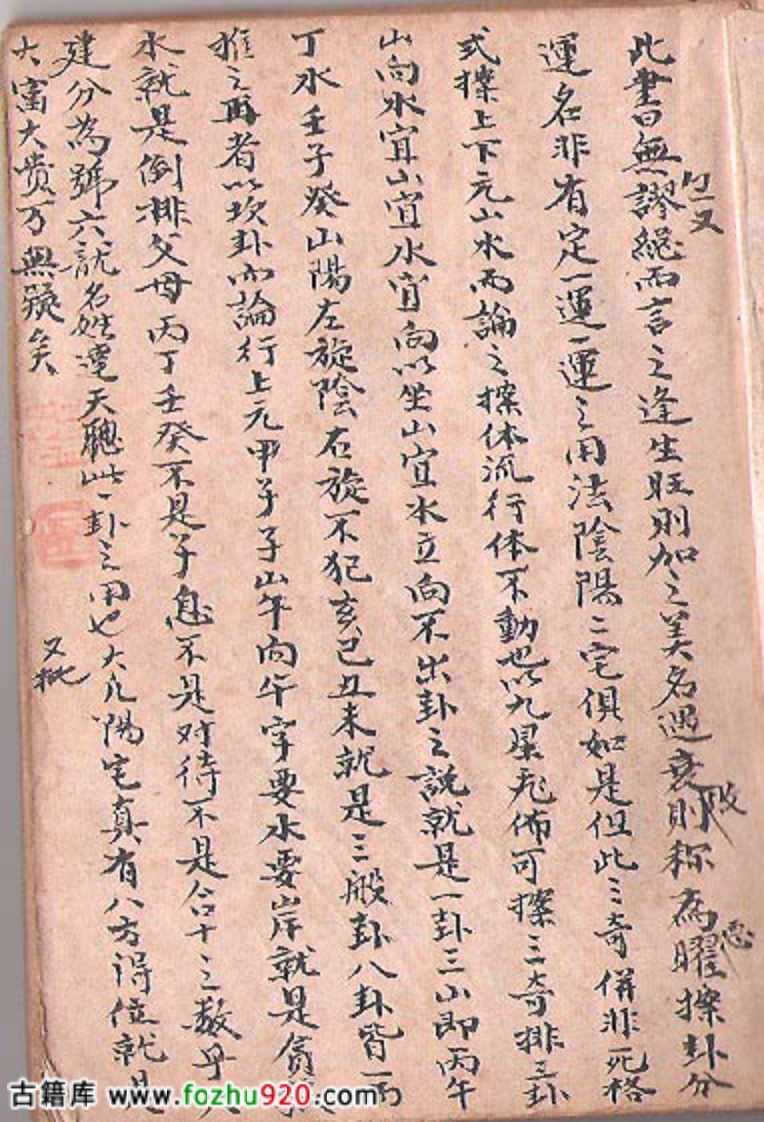 此書曰無謬總而言之逢生旺則加之美名遇衰則称為曜操卦分
運名非有定一運一運之用法陰陽二宅俱如是但此三奇併非死格
式操上下元山水而論之操体流行体不動也以九星飛佈可操三奇排三卦
山向水宜山宜水宜向以坐山宜水立向不出卦之說就是一卦三山即丙午
丁水壬子癸山陽左旋陰右旋不犯亥巳丑未就是三般卦八卦皆一而
推之再者以坎卦而論行上元甲子子山午向午字要水要岸就是
水就是倒排父母丙丁壬癸不是子息不是对待不是合十之数乎
建分為號六就名姓達天聰此一卦之用也大凡陽宅真有八方得位就是
大富大贵万無疑矣
又
败
恶
又批
古籍库 www.fozhu920.com